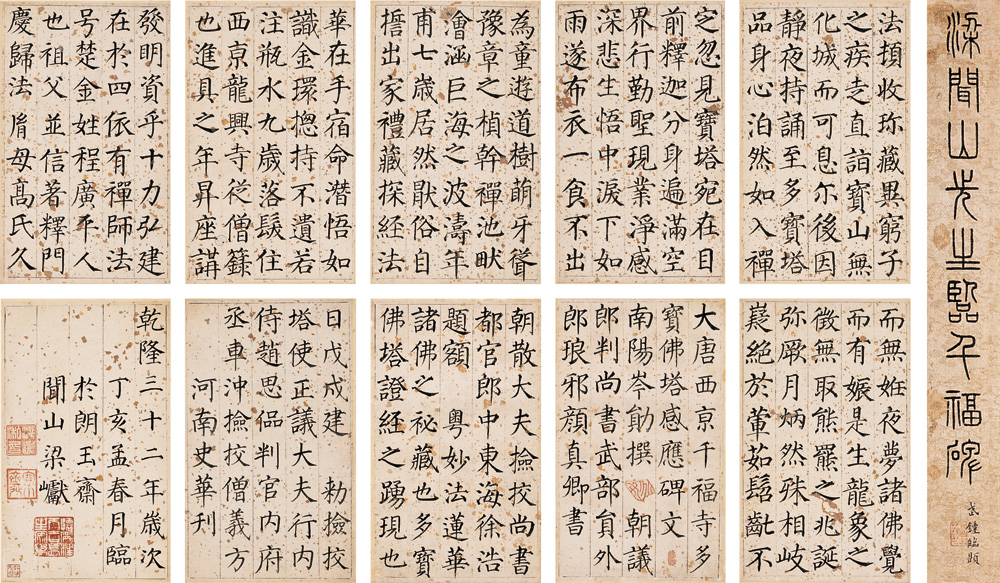 梁聞山先生臨千福碑
法頓收珎藏異窮子
之疾走直詣寶山無
化城而可息尔後因
靜夜持誦至多寶塔
品身心泊然如入禪
定忽見寶塔宛在目
前釋迦分身遍滿空
界行勤聖現業淨感
深悲生悟中淚下如
雨遂布衣一食不出
為童遊道樹萌牙聳
豫章之楨幹禪池畎
澮涵巨海之波濤年
甫七歲居然猒俗自
擔出家禮藏探經法
華在手宿命潛悟如
識金環揔持不遺若
注瓶水九歲落髮住
西京龍興寺從僧籙
也進具之年昇座講
發明資乎十力弘建
在於四依有禪師法
号楚金姓程廣平人
也祖父並信著釋門
慶歸法胤母髙氏久
而無姙夜夢諸佛覺
而有娠是生龍象之
徵無取熊羆之兆誕
弥厥月炳然殊相岐
嶷絕於葷茹髫齔不
大唐西京千福寺多
寶佛塔感應碑文
南陽岑勛撰 朝議
郎判尚書武部貟外
郎琅邪顏真卿書
朝散大夫撿挍尚書
都官郎中東海徐浩
題額 粵妙法蓮華
諸佛之祕藏也多寶
佛塔證經之踴現也
日戊戌建 勑撿挍
塔使正議大夫行內
侍趙思品判官內府
丞車沖撿挍僧義方
河南史華刊
乾隆三十二年歲次
丁亥孟春月臨
於朗玉齋
聞山梁巘